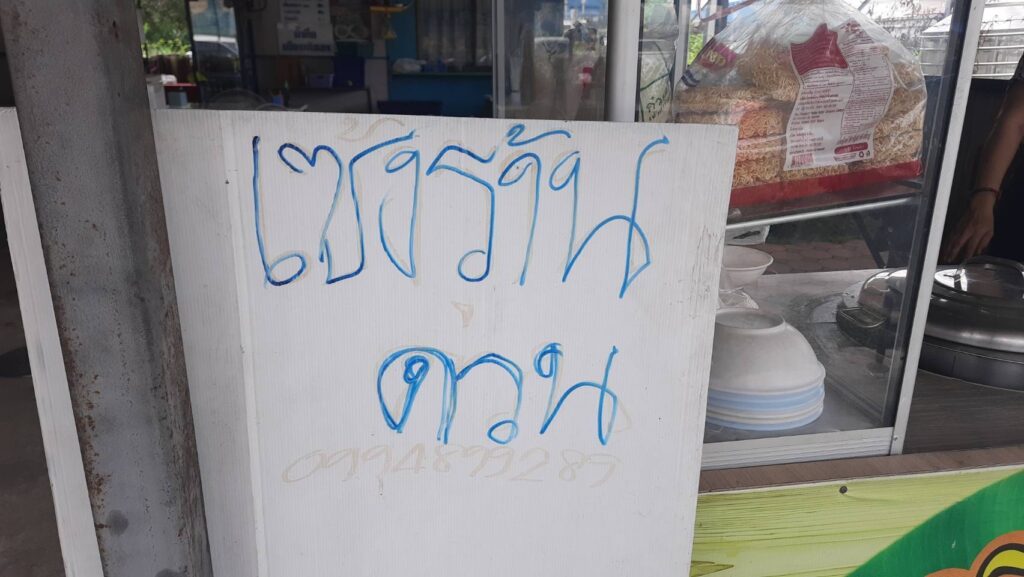 เซ้งร้าน
ด่วน
0994899289